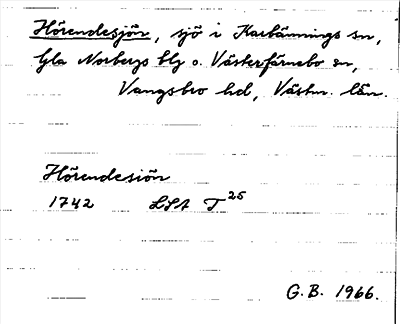 Hörendesjön, sjö i Karbännings sn,
Gla Norbergs blg o. Västerfärnebo sn,
Vangsbro hd, Västm. län.
Hörendesiön
1742 LSA T 25
G.B. 1966.